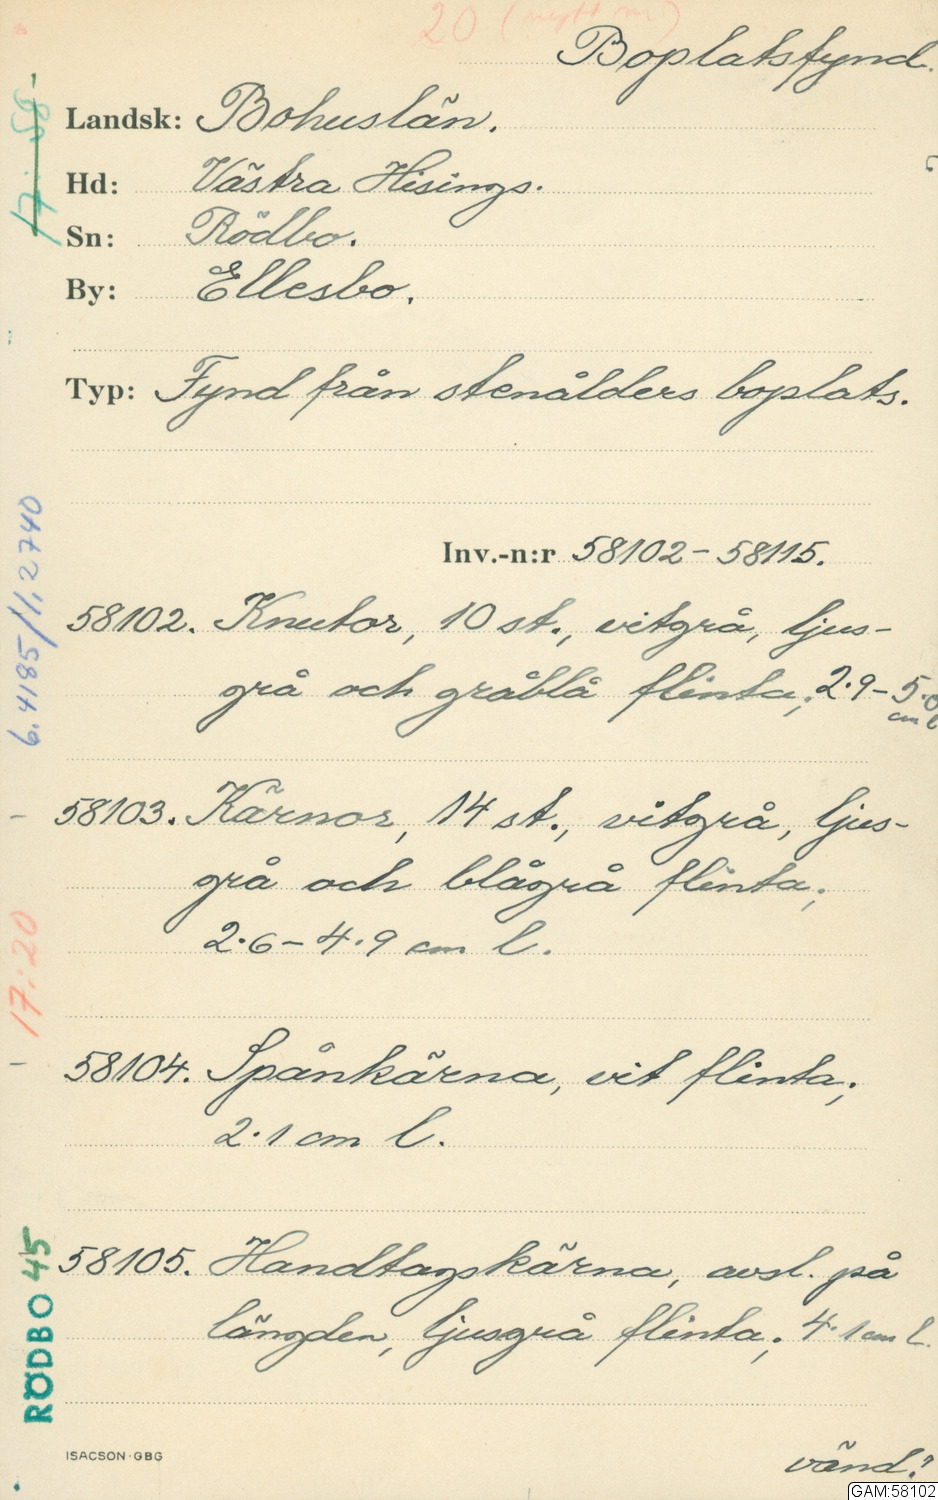 20 (nytt nr)
Boplatsfynd.
Landsk: Bohuslän.
Hd: Västra Hisings.
Sn: Rödbo.
By: Ellesbo.
Typ: Fynd från stenålders boplats.
Inv.-n:r 58102-58115.
58102. Knutor, 10 st., vitgrå, ljus-
grå och gråblå flinta; 2.9-5.0
cm l
58103. Kärnor, 14 st., vitgrå, ljus-
grå och blågrå flinta;
2.6-4.9 cm l.
58104. Spånkärna, vit flinta;
2.1 cm l.
58105. Handtagskärna, avsl. på
längden, ljusgrå flinta; 4.1 cm l.
ISACSON·GBG
vänd!
17:58
6.4185/1,2740
- 17:20 -
RÖDBO 45
GAM:58102